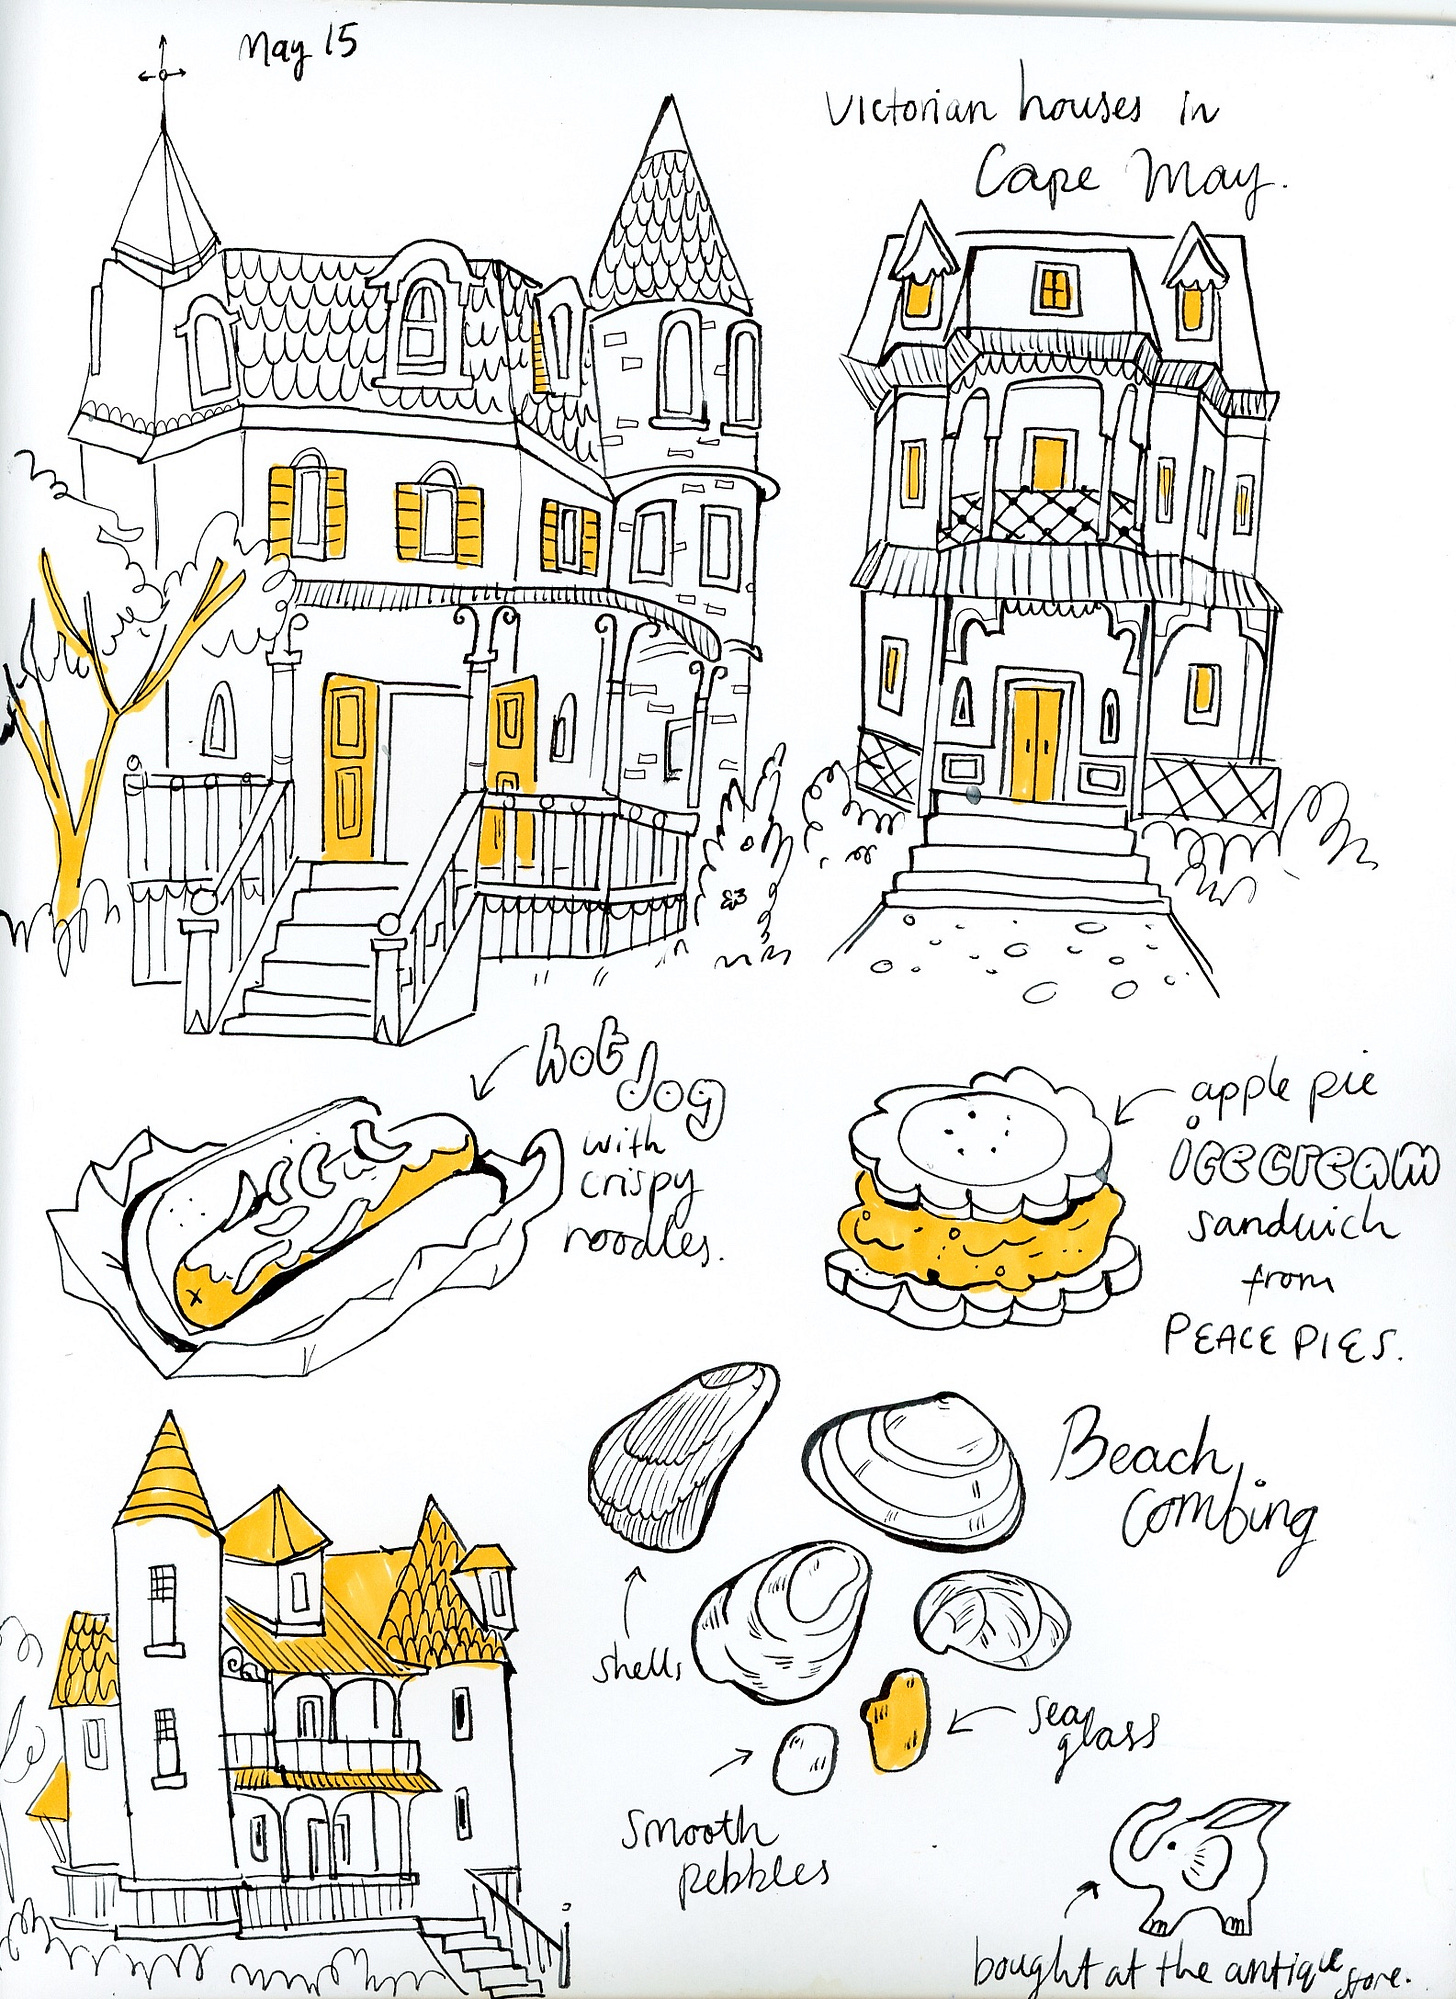 May 15
Victorian houses in
Cape May.
hot
dog
with
crispy
noodles.
apple pie
icecream
sandwich
from
PEACE PIES.
Beach
combing
shells
sea
glass
smooth
pebbles
bought at the antique store.